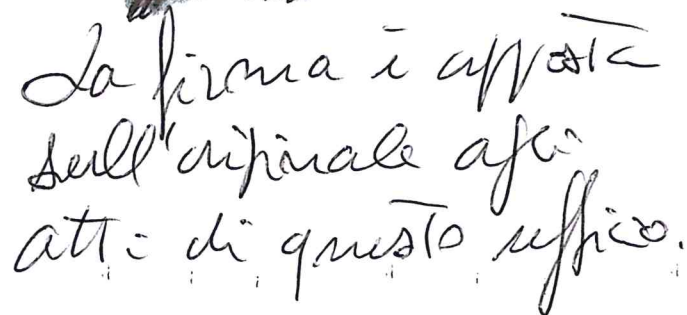 La firma è apposta
sull'originale agli
atti di questo ufficio.